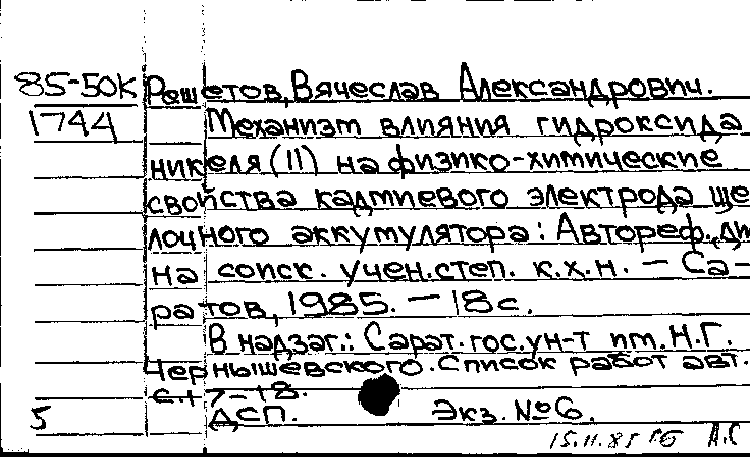 85-50К Решетов, Вячеслав Александрович.
1744 Механизм влияния гидроксида
никеля (II) на физико-химические
свойства кадмиевого электрода ще-
лочного аккумулятора: Автореф. дис.
на соиск. учен. степ. к.х.н. — Са-
ратов, 1985. — 18 с.
В надзаг.: Сарат. гос. ун-т им. Н.Г.
Чернышевского. Список работ авт.
с. 17-18.
5 ДСП. Экз. № 6.
15.11.85 А.С